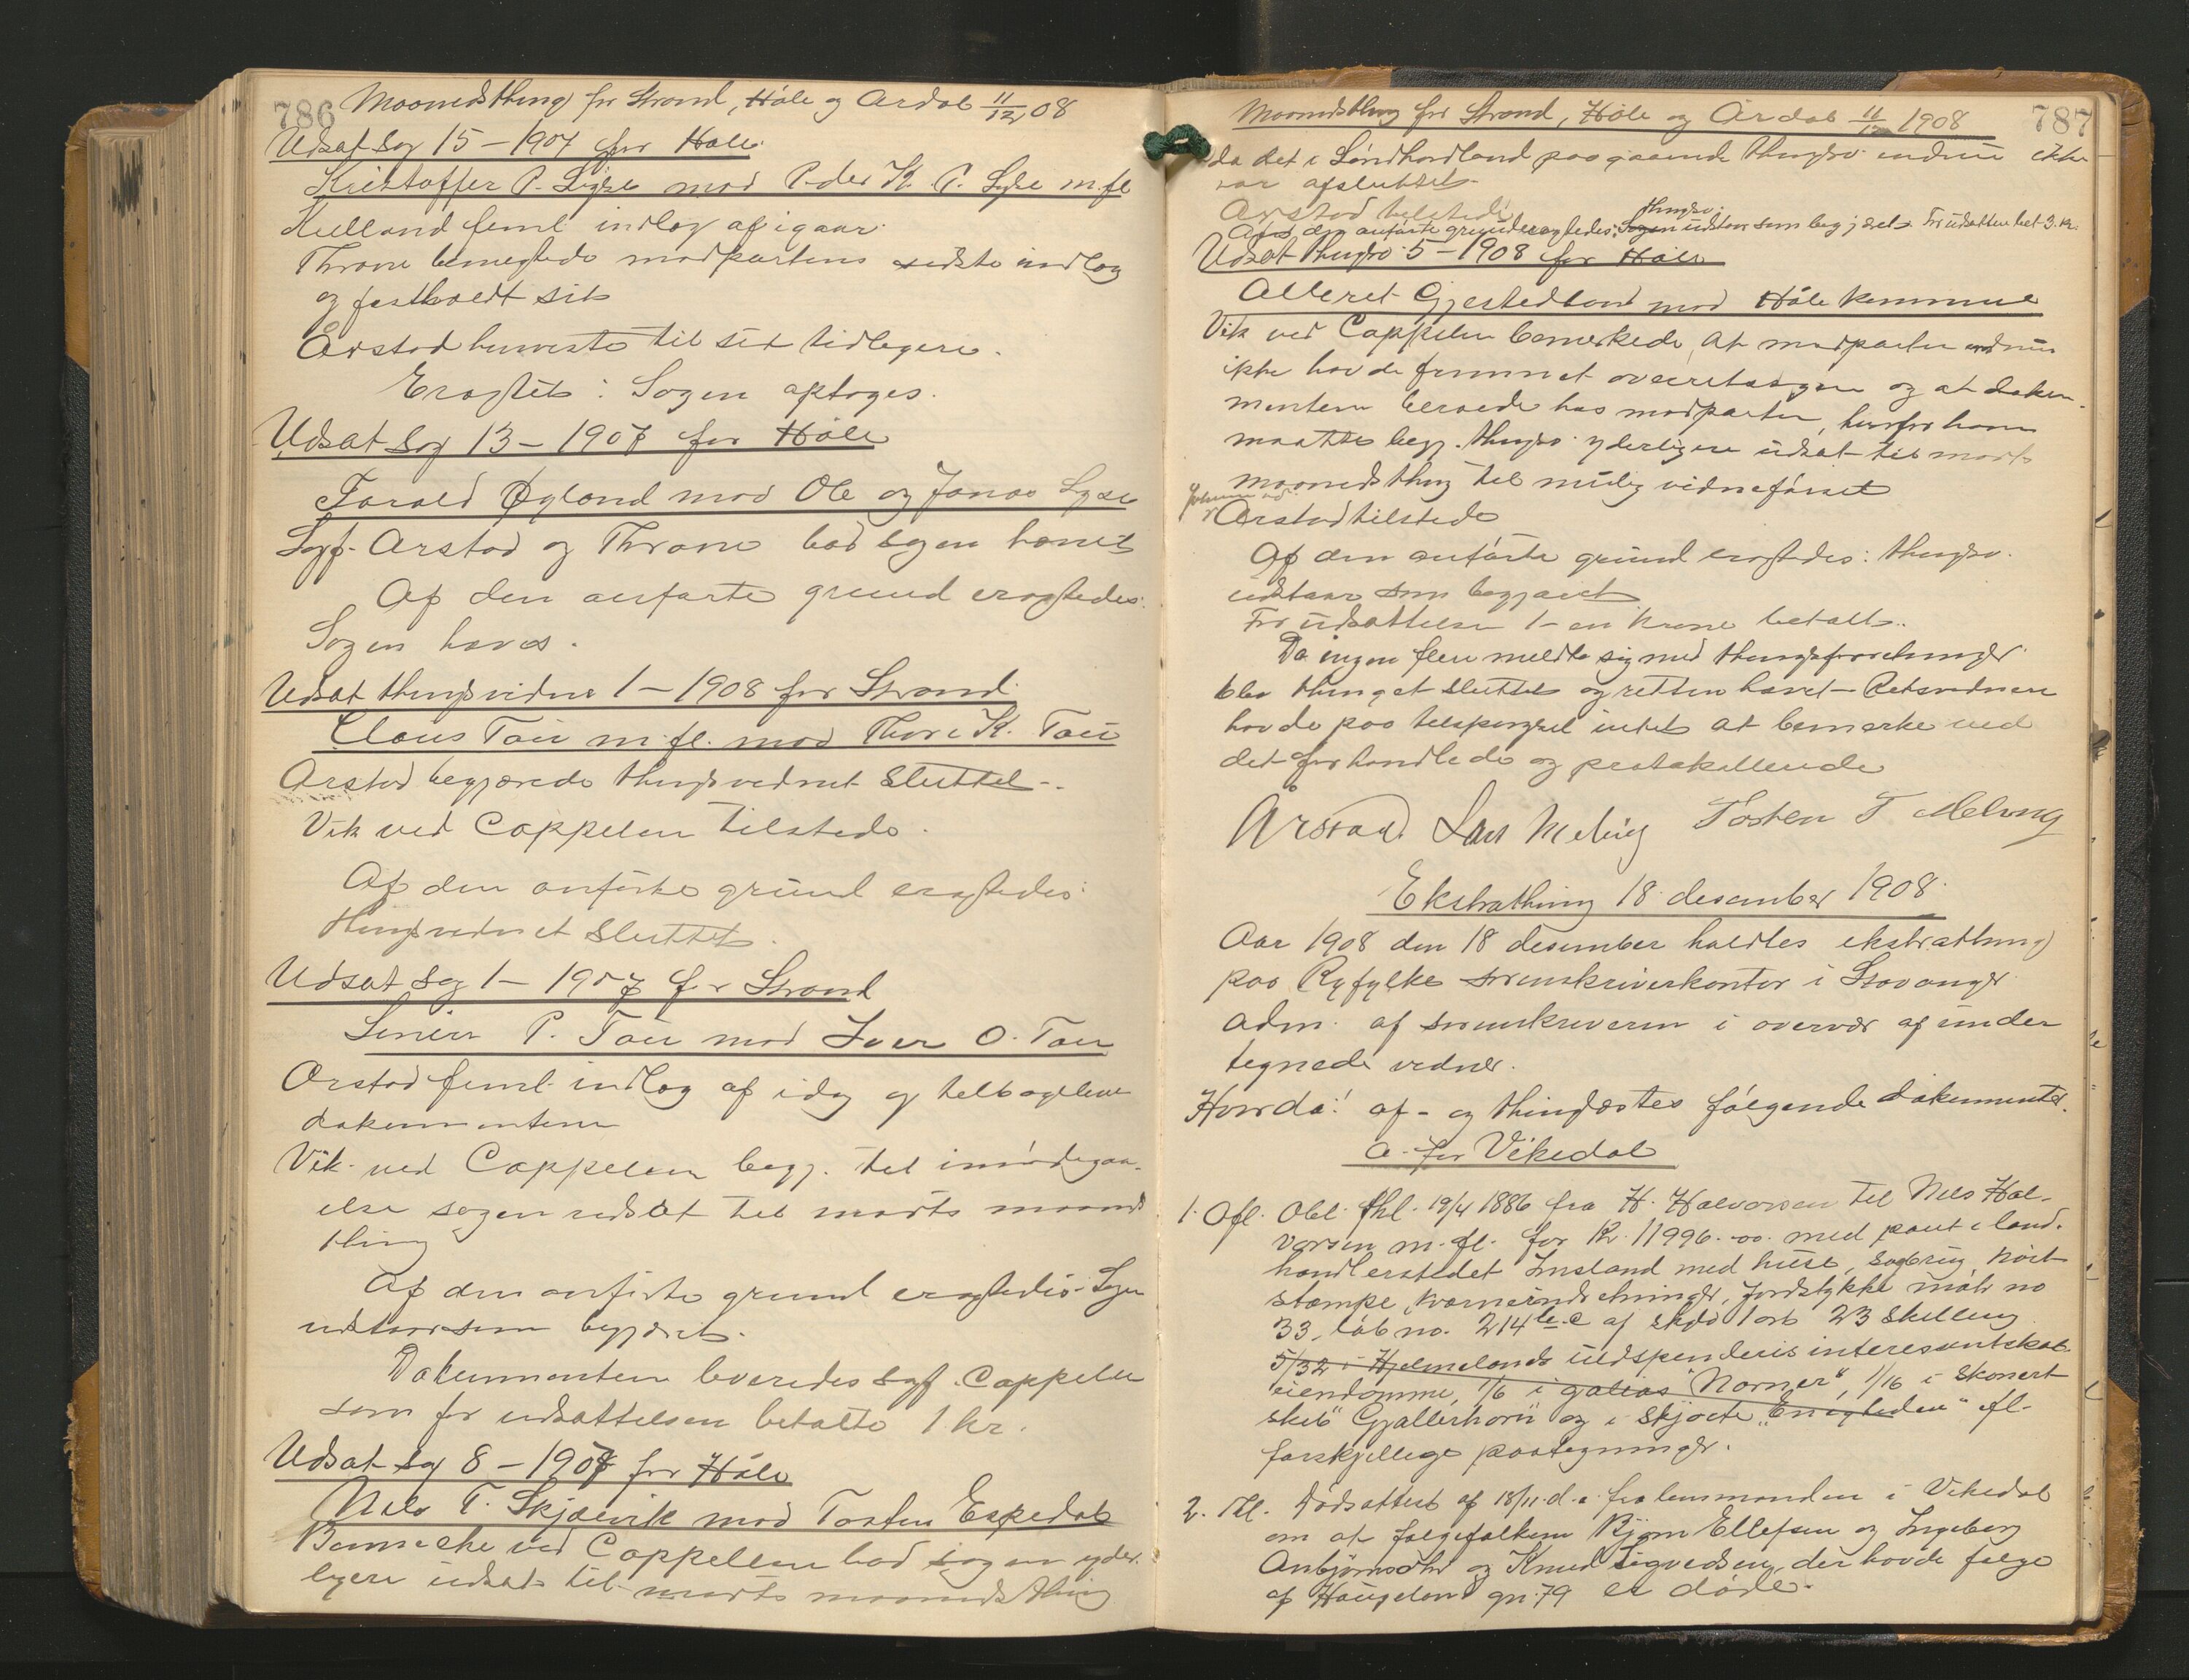 786 Maanedsthing for Strand, Høle og Aardal 11/12 08
Udsat sag 15 - 1907 for Høle
Kristoffer P. Lyse mod Peder K. P. Lyse m.fl
Kielland freml. indlæg af igaar.
Throne benegtede modpartens sidste indlæg
og fastholdt sit
Årstad henviste til sit tidligere.
Eragtet: Sagen optages.
Udsat sag 13 - 1907 for Høle
Tarald Øgland mod Ole og Jonas Lyse
Sagf. Arstad og Throne bad sagen hævet
Af den anførte grund eragtedes:
Sagen hæves.
Udsat thingsvidne 1 - 1908 for Strand
Claus Tau m.fl. mod Thore K. Tau
Arstad begjærede thingsvidnet sluttet.
Vik ved Cappelen tilstede.
Af den anførte grund eragtedes:
thingsvidnet sluttet.
Udsat sag 1 - 1907 for Strand
P. Tau mod Iver O. Tau
Arstad freml. indlæg af idag og tilbageleve
dokumenterne
Vik ved Cappelen begj. til imødegaa-
else sagen udsat til marts maaneds
thing
Af den anførte grund eragtedes: Sagen
udstaar som begjæret.
Dokumenterne leveredes sagf. Cappelen
som for udsættelsen betalte 1 kr.
Udsat sag 8 - 1908 for Høle
Nils T. Skjælvik mod Tosten Espedal
ved Cappelen bad sagen yder
ligere udsat til marts maanedsthing
Maanedsthing for Strand, Høle og Årdal 11/12 1908 787
da det i Søndhordland paagaaende thingsv. endnu ikke
var afsluttet.
Arstad tilstede
thingsv.
Af den anførte grund eragtedes: Sagen udstaar som begjæret. For udsættelse bet. 3 kr.
Udsat thingsv. 5 - 1908 for Høle
Alleret Gjestedland mod Høle kommune
Vik ved Cappelen bemerkede, at modparten endnu
ikke havde fremmet overretssagen og at doku-
menterne beroede hos modparten, hvorfor han
maatte begj. thingsv. yderligere udsat til marts
maanedsthing til mulig vidneførsel
Arstad tilstede
Af den anførte grund eragtedes: thingsv.
udstaar som begjæret
For udsættelsen 1 - en krone betalt.
Da ingen flere meldte sig med thingsforretninger
blev thinget sluttet og retten hævet - Retsvidnerne
havde paa tilspørgsel intet at bemerke ved
det forhandlede og protokollerede
Årstad Lars Meling Tosten T Meling
Ekstrathing 18 desember 1908.
Aar 1908 den 18 desember holdtes ekstrathing
paa Ryfylke sorenskriverkontor i Stavanger
adm. af sorenskriveren i overvær af under
tegnede vidner.
Hvorda: af- og thinglæstes følgende dokumenter.
a. for Vikedal
1. Afl. Obl. thl. 19/4 1886 fra H. Halvorsen til Nils Hal-
vorsen m.fl. for Kr. 11996.00. med pant i land-
handlerstedet Imsland med huse, sagbrug,
stampe, kværneindretninger, jordstykke matr no
33, løb no. 214 c af skyld 1 ort 23 skilling
5/32 i Hjelmelands uldspinderis interesentskab
eiendomme, 1/6 i galias "Norner", 1/16 i skonert
skib "Gjallerhorn" og i skjøite "Enigheden" efl.
forskjellige paategninger.
2. Thl. Dødsattest af 18/11 d.a. fra lensmanden i Vikedal
om at følgefolkene Bjørn Ellefsen og Ingeborg
Anbjørnsdtr og Knud Sigvedsen, der havde følge
af Haugeland gn. 79 er døde.